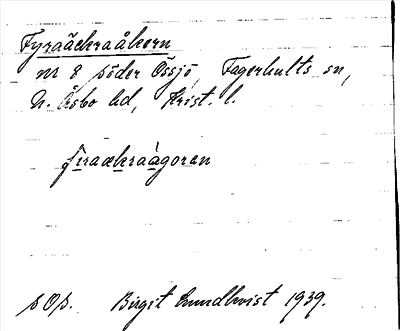 Fyraäekraåkern
nr 8 söder Össjö, Fagerhults sn,
N. Åsbo hd, Krist. l.
firaækraågoran
sOp. Birgit Lundkvist 1939.